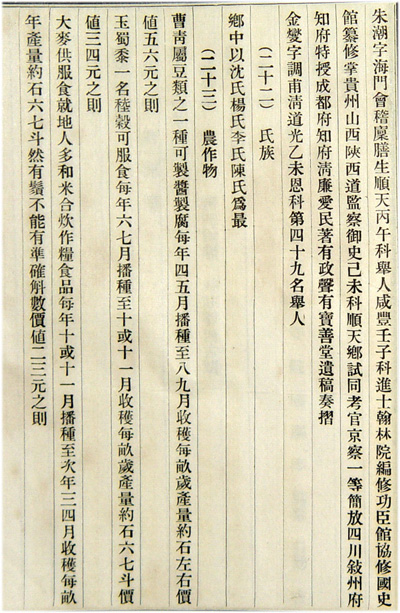 朱潮字海門會稽廩膳生順天丙午科舉人咸豐壬子科進士翰林院編修功臣館協修國史
館纂修掌貴州山西陝西道監察御史己未科順天鄉試同考官京察一等簡放四川敍州府
知府特授成都府知府清廉愛民著有政聲有寶善堂遺稿奏摺
金燮字調甫清道光乙未恩科第四十九名舉人
(二十二)　氏族
鄉中以沈氏楊氏李氏陳氏爲最
(二十三)　農作物
曹靑屬豆類之一種可製醬製腐每年四五月播種至八九月收穫每畝歲產量約石左右價
値五六元之則
玉蜀黍一名稑穀可服食每年六七月播種至十或十一月收穫每畝歲產量約石六七斗價
値三四元之則
大麥供服食就地人多和米合炊作糧食品每年十或十一月播種至次年三四月收穫每畝
年產量約石六七斗然有鬚不能有準確斛數價値二三元之則